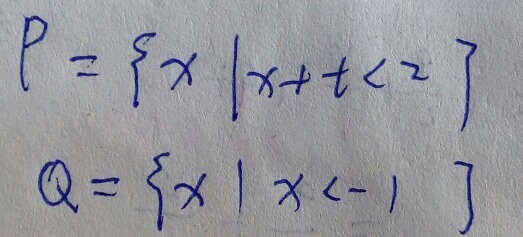 P = {x | x+t<2}
Q = {x | x<-1}